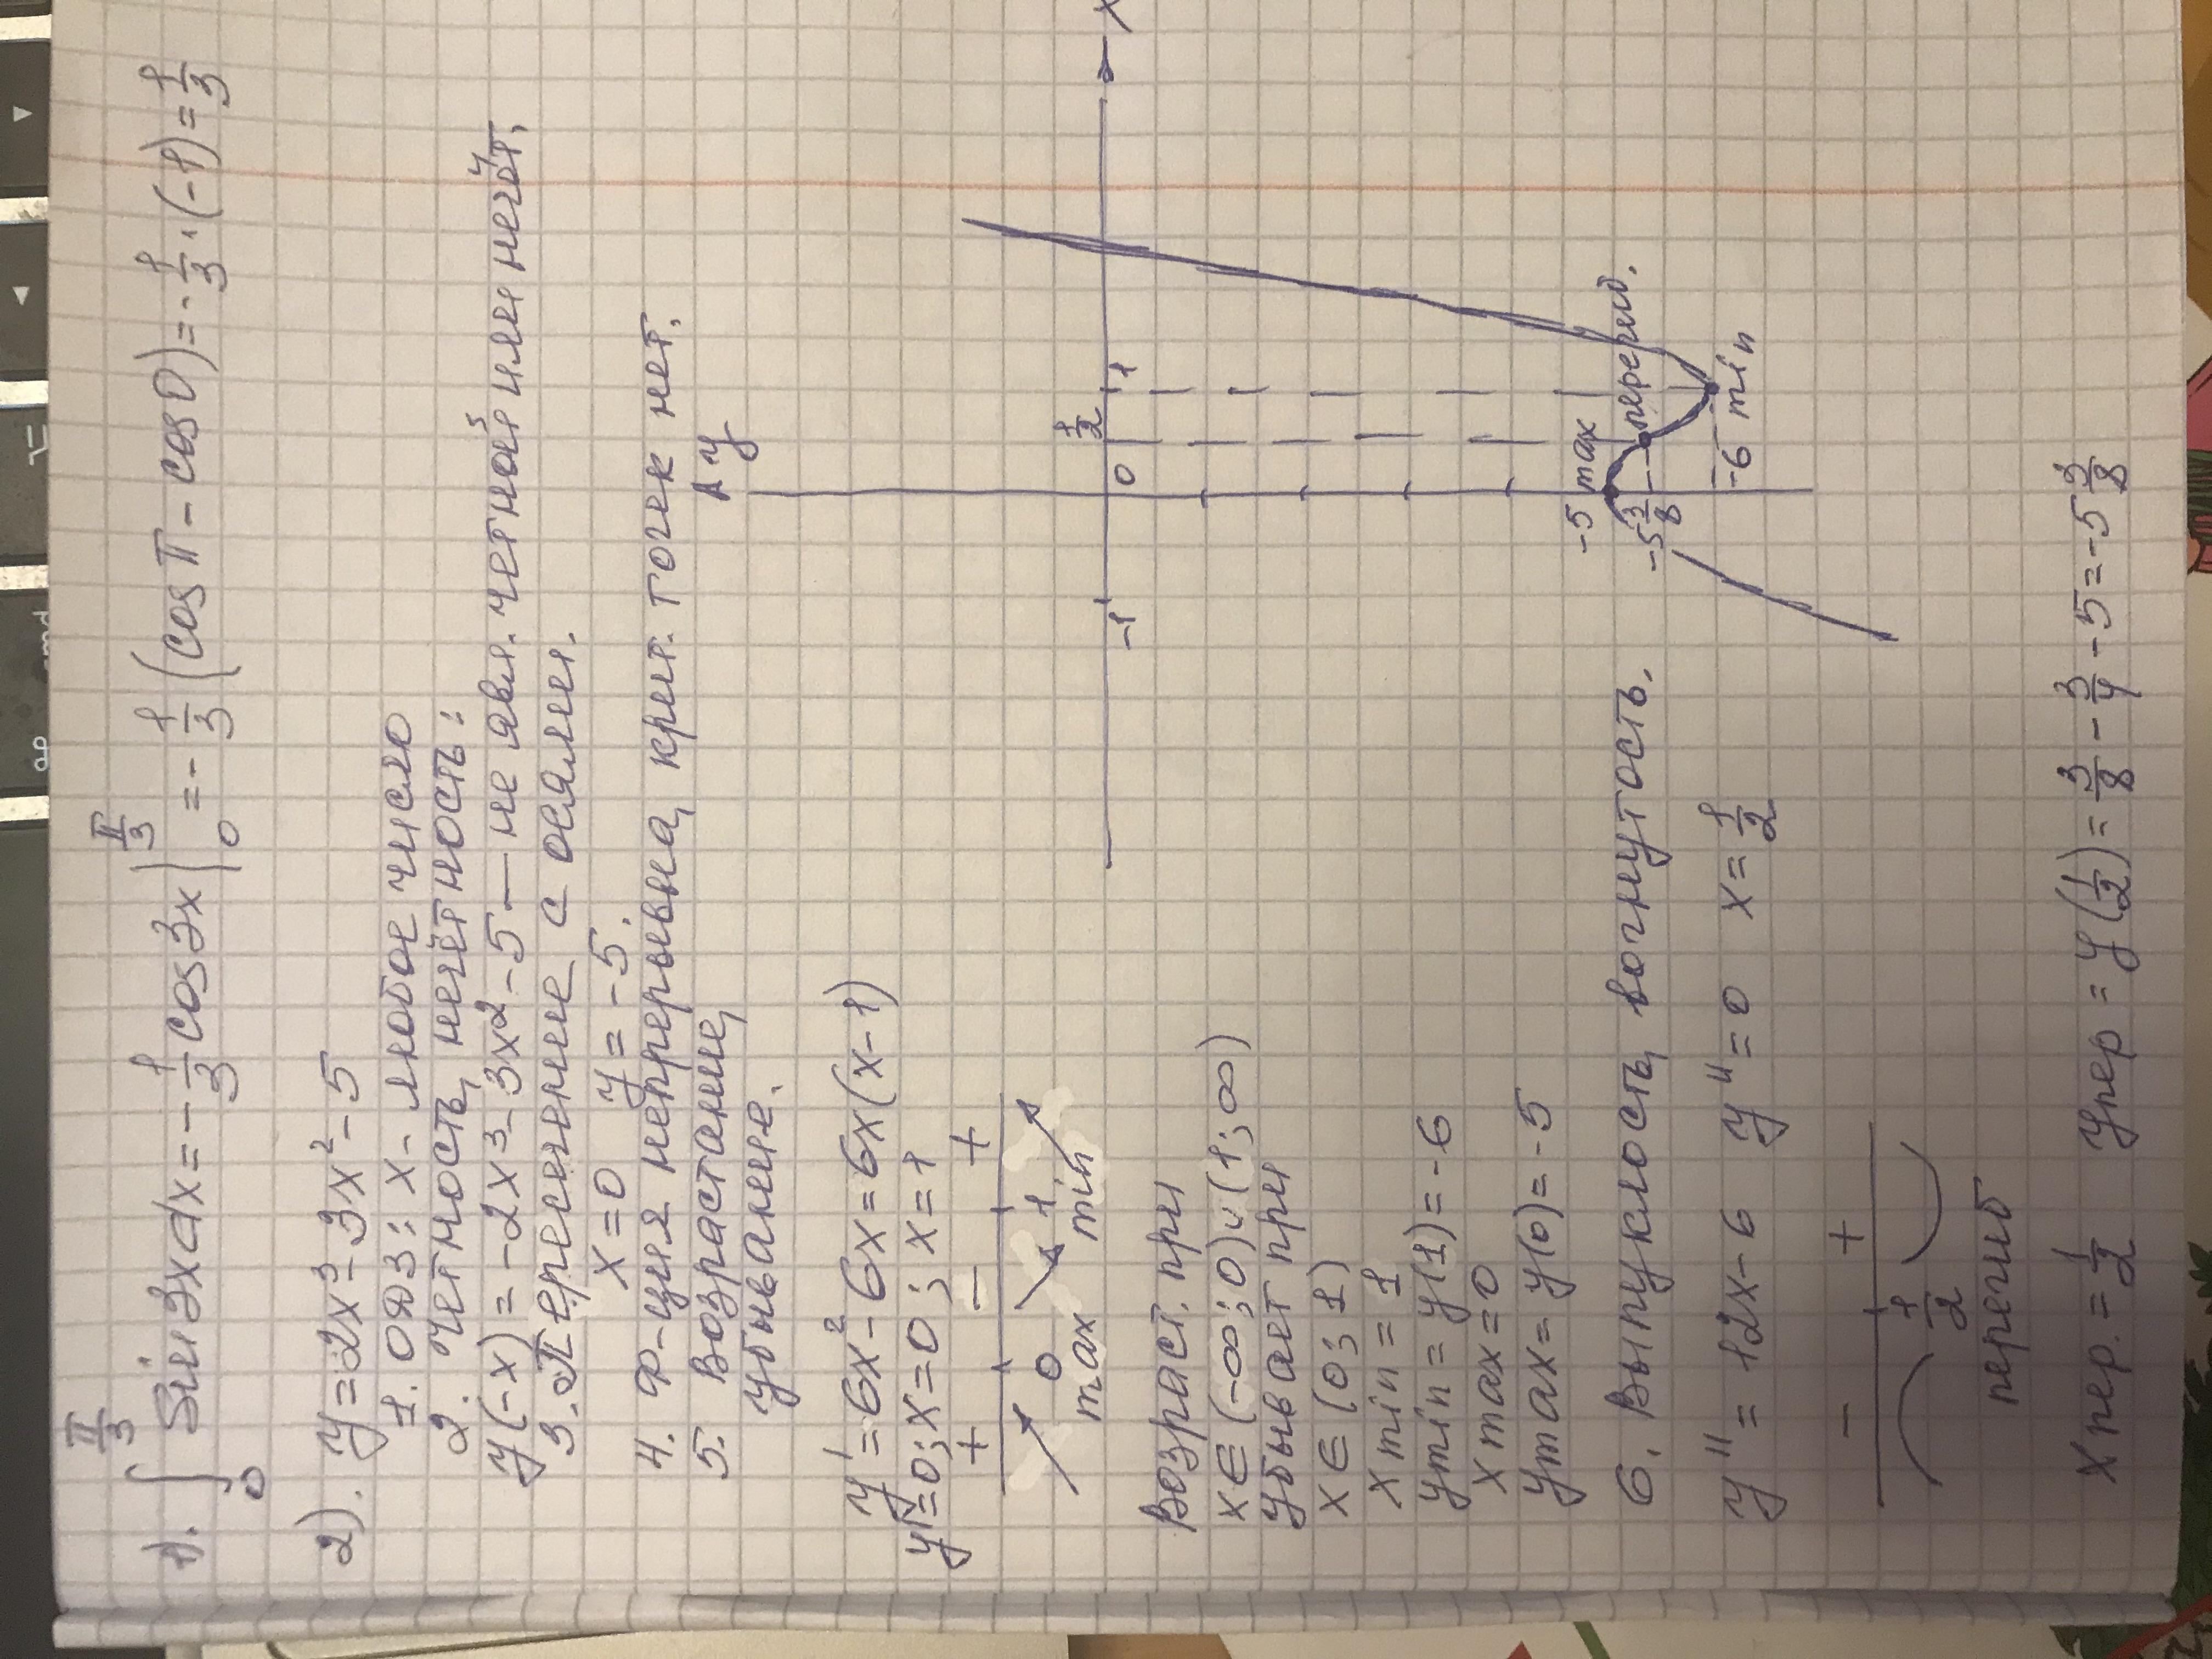 1). ∫₀^(π/3) Sin3xdx = -1/3 cos3x |₀^(π/3) = -1/3 (cosπ - cos0) = -1/3 · (-1) = 1/3
2). y = 2x³ - 3x² - 5
1. ОДЗ: x - любое число
2. Четность, нечётность:
y(-x) = -2x³ - 3x² - 5 — не явл. четной или нечёт.
3. Пересечение с осями.
x = 0 y = -5.
4. Ф-ция непрерывна, крит. точек нет.
5. Возрастание,
убывание.
y' = 6x² - 6x = 6x(x-1)
y' = 0; x = 0; x = 1
+ - +
0 1
max min
Возраст. при
x ∈ (-∞; 0) ∪ (1; ∞)
Убывает при
x ∈ (0; 1)
x min = 1
y min = y(1) = -6
x max = 0
y max = y(0) = -5
6. Выпуклость, вогнутость.
y'' = 12x - 6 y'' = 0 x = 1/2
- +
1/2
перегиб
x пер. = 1/2 y пер = y(1/2) = 3/8 - 3/4 - 5 = -5 3/8
y
-1 0 1/2 1 x
-5 max
-5 3/8 перегиб.
-6 min